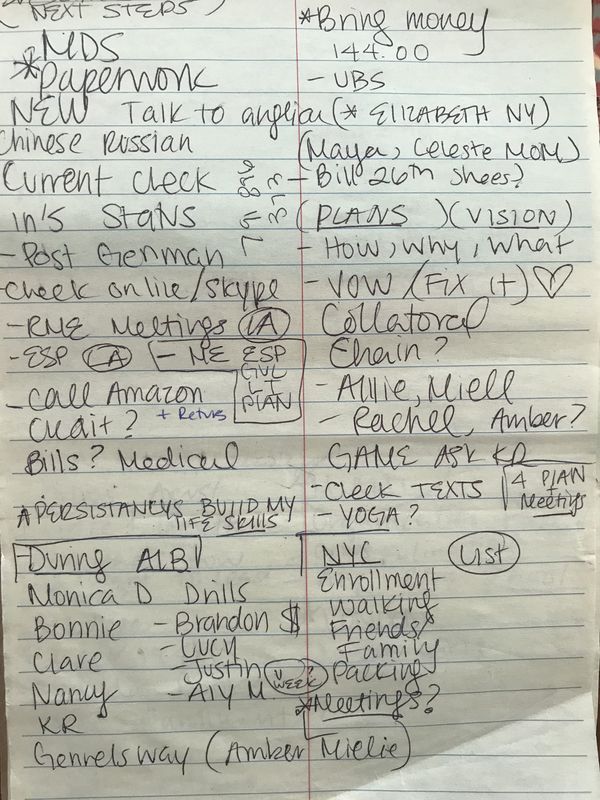 (NEXT STEPS)
MDS
*Paperwork
NEW Talk to anglica (* ELIZABETH NY)
Chinese Russian
Current check
in's Stans
- Post German
- check online/skype
- RNE Meetings LA
- ESP LA - NE ESP
GVL
LT
PLAN
- Call Amazon
Cudit? + Return
Bills? Medical
*PERSISTANCYS BUILD MY
LIFE SKILLS
During ALB
Monica D Drills
Bonnie - Brandon $
Clare - Lucy
- Justin
WEEK?
Nancy - Aly M
KR
Genrels way (Amber Mielie)
*Bring money
144.00
- UBS
(Maya, Celeste MOM)
- Bill 26th Shees?
(PLANS) (VISION)
- How, Why, What
- VOW (Fix it) ♡
Collatoral
Chain?
- Allie, Miell
- Rachel, Amber?
GAME ASK KR
- Check TEXTS 4 PLAN
Meetings
- YOGA?
NYC List
Enrollment
Walking
Friends/
Family
Packing
*Meetings?